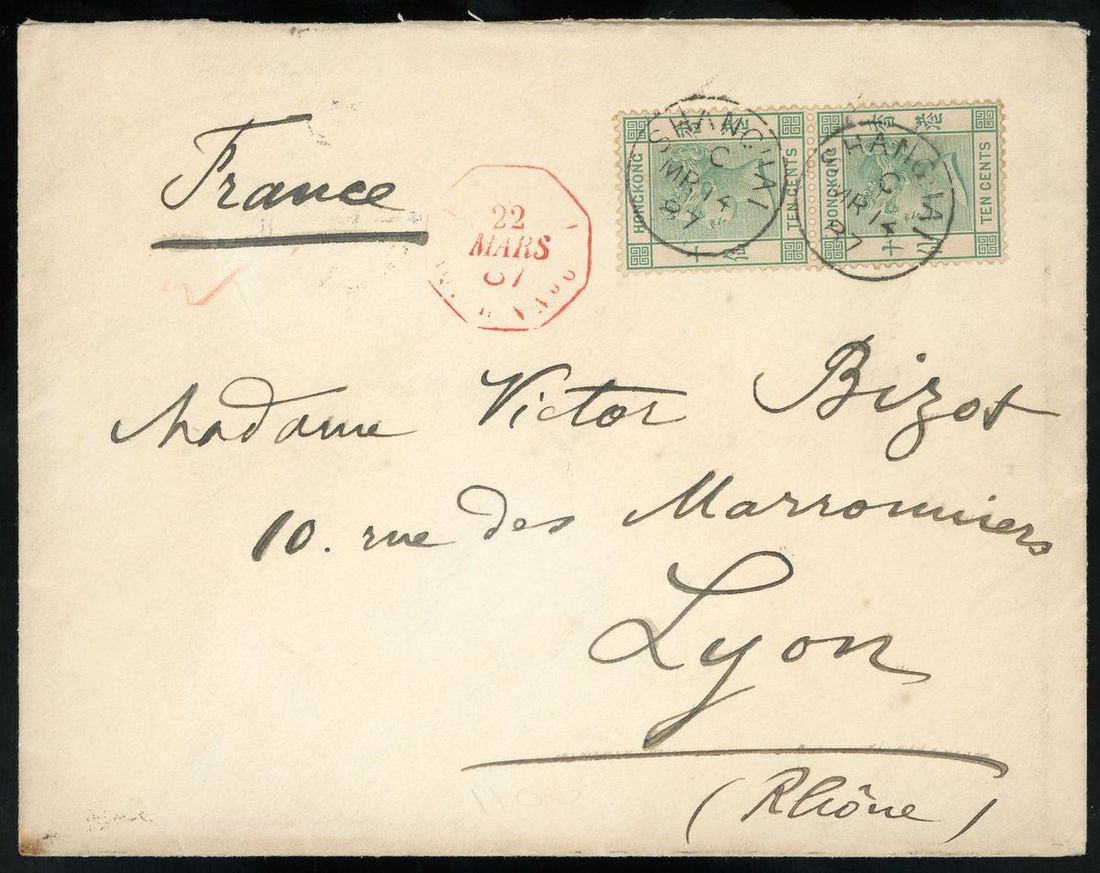 France
22
MARS
87
HONGKONG
香港
TEN CENTS
HONGKONG
香港
TEN CENTS
SHANGHAI
C
MR 14
87
SHANGHAI
C
MR 14
87
Madame Victor Bizot
10. rue des Marronniers
Lyon
(Rhône)